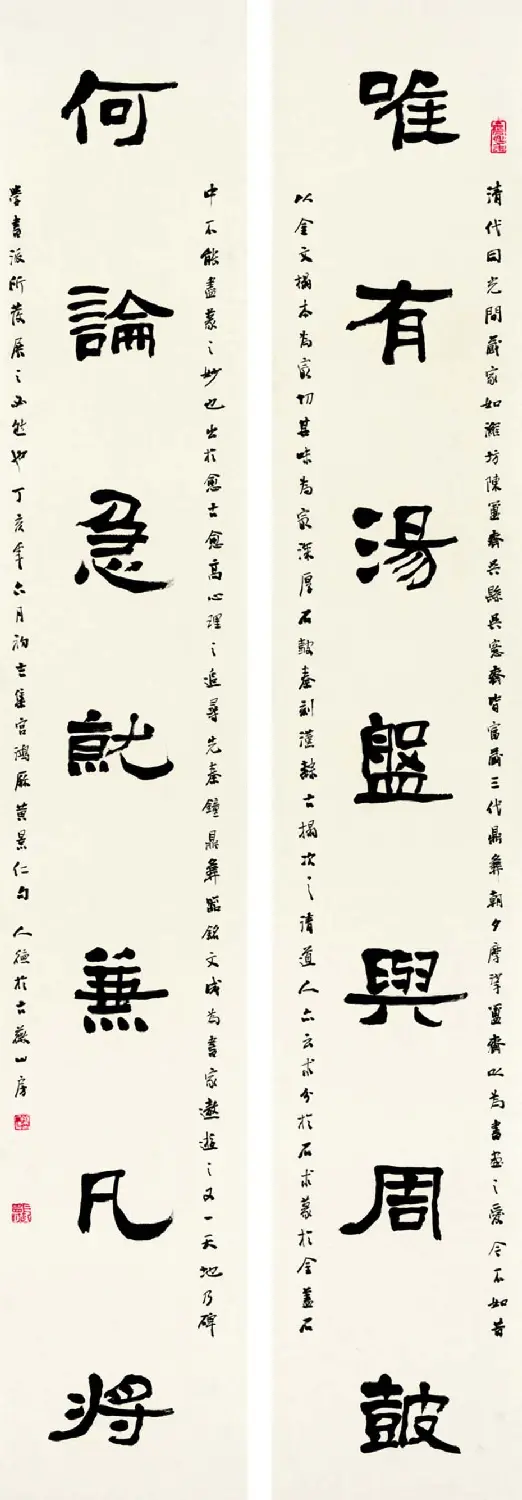 唯有湯盤與周鼓
清代同光間藏家如濰坊陳簠齋吳縣吳愙齋皆富藏三代鼎彝朝夕摩挲簠齋以為書畫之愛今不如昔
以金文搨本為最切其味為最深厚石鼓秦刻漢隸古搨次之清道人亦云求分於石求篆於金蓋石
何論急就兼凡將
中不能盡篆之妙也出於愈古愈高心理之追尋先秦鐘鼎彝器銘文成為書家遨遊之又一天地乃碑
學書派所發展之必然也丁亥年六月初吉集宮鴻歷黃景仁句 人德於古薇山房